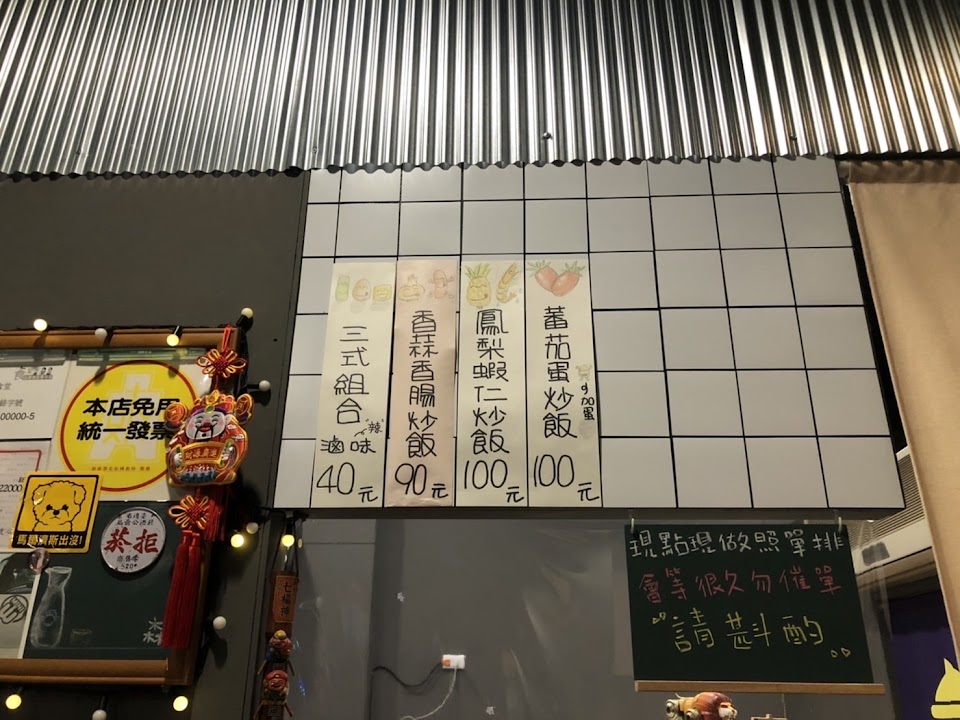 蕃茄蛋炒飯
加蛋
100元
鳳梨蝦仁炒飯
100元
香蒜香腸炒飯
90元
三式組合
辣
滷味
40元
本店免用
統一發票
馬爾濟斯出沒!
菸拒
現點現做照單排
會等很久勿催單
請斟酌